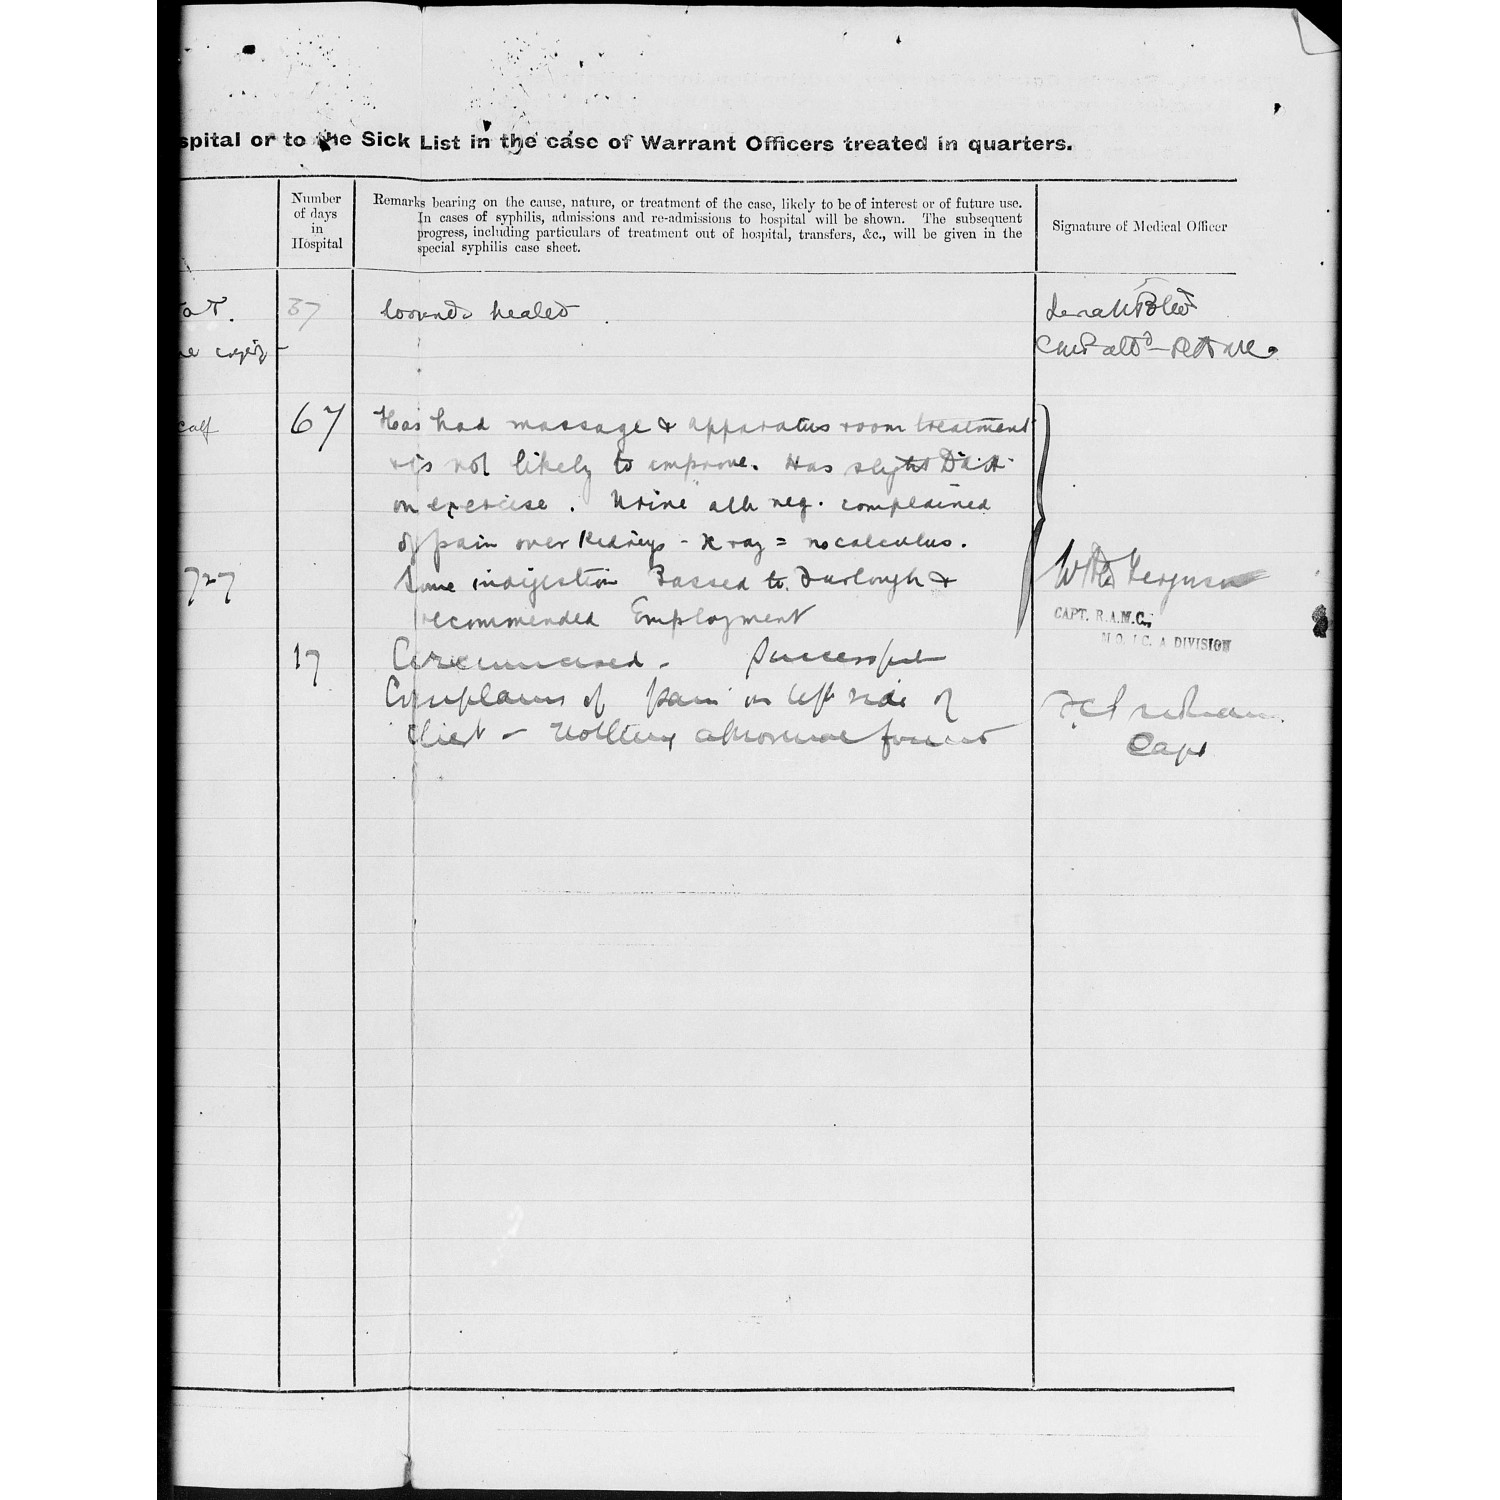 spital or to the Sick List in the case of Warrant Officers treated in quarters.
Number
of days
in
Hospital
Remarks bearing on the cause, nature, or treatment of the case, likely to be of interest or of future use.
In cases of syphilis, admissions and re-admissions to hospital will be shown. The subsequent
progress, including particulars of treatment out of hospital, transfers, &c., will be given in the
special syphilis case sheet.
Signature of Medical Officer
37
wounds healed
calf
67
Has had massage & apparatus room treatment
& is not likely to improve. Has slight D.A.H.
on exercise. Urine alb neg. complained
of pain over Kidneys - X ray = no calculus.
727
Some indigestion Passed to Furlough &
recommended Employment
Ferguson
CAPT. R.A.M.C.
M.O. I/C. A DIVISION
17
Circumcised - Successful
Complains of pain in left side of
chest - Nothing abnormal found
Capt